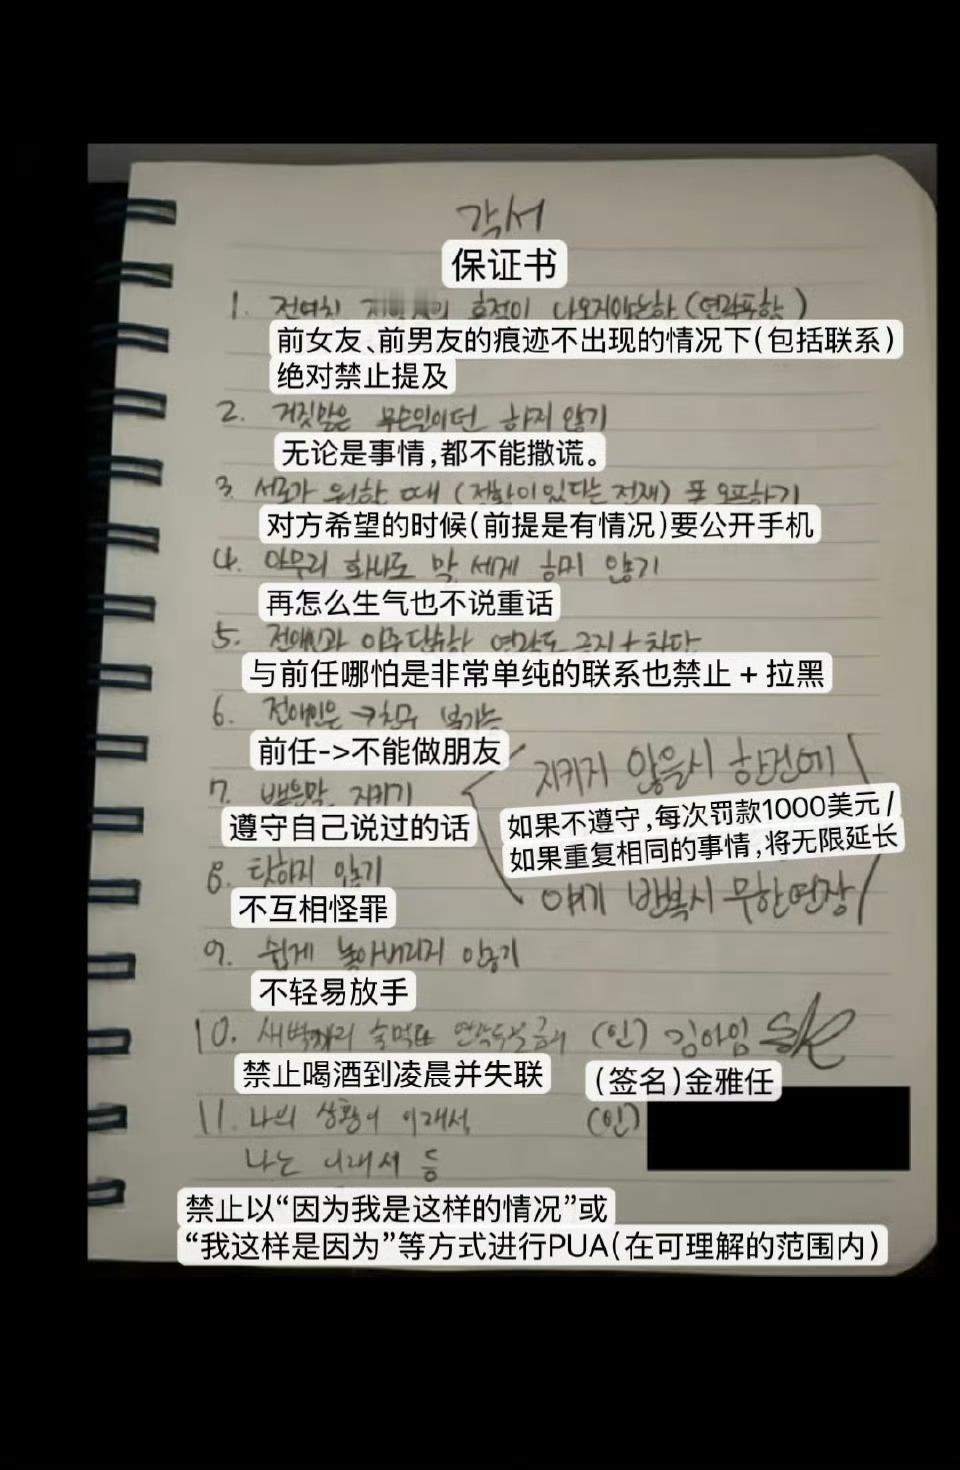 각서
保证书
1. 전여친 흔적이 나오지않는한 (연락포함)
前女友、前男友的痕迹不出现的情况下(包括联系)
绝对禁止提及
2. 거짓말은 무슨일이던 하지 않기
无论是事情,都不能撒谎。
3. 서로가 원할 때 (전황이있다는 전제) 폰 오픈하기
对方希望的时候(前提是有情况)要公开手机
4. 아무리 화나도 말 세게 하지 않기
再怎么生气也不说重话
5. 전애인과 아주단순한 연락도 금지 + 차단
与前任哪怕是非常单纯的联系也禁止 + 拉黑
6. 전애인은 → 친구 불가능
前任->不能做朋友
7. 뱉은말 지키기
遵守自己说过的话
지키지 않을시 한건에
如果不遵守,每次罚款1000美元/
如果重复相同的事情,将无限延长
얘기 반복시 무한연장
8. 탓하지 않기
不互相怪罪
9. 쉽게 놓아버리지 않기
不轻易放手
10. 새벽까지 술먹고 연락두절 금지 (인) 김아임
禁止喝酒到凌晨并失联 (签名)金雅任
11. 나의 상황이 이래서 (인)
나는 이래서 등
禁止以“因为我是这样的情况”或
“我这样是因为”等方式进行PUA(在可理解的范围内)